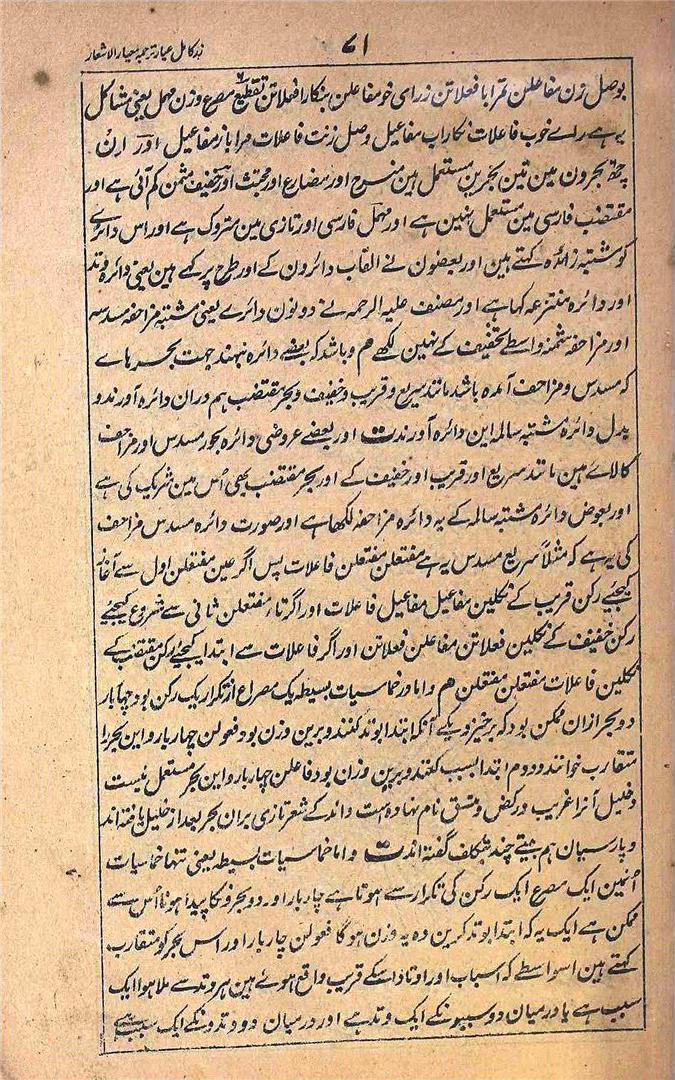 زر کامل عیار ترجمہ معیار الاشعار
۷۱
بوصل زن مفاعلن مرابا فعلاتن زرای خو مفاعلن بنکارا فعلاتن تقطیع مصرع وزن مہمل یعنی مشاکل
یہ ہے راے خوب فاعلات نکاراب مفاعیل وصل زنت فاعلات مراباز مفاعیل اور ان
چھ بحرون مین تین بحرین مستعمل ہین منسرح اور مضارع اور مجتث اور خفیف مثمن کم آئی ہے اور
مقتضب فارسی مین مستعمل نہین ہے اور مہمل فارسی اور تازی مین متروک ہے اور اس دائرے
کو مشتبہ زائدہ کہتے ہین اور بعضون نے القاب دائرون کے اور طرح پر کہے ہین یعنی دائرہ وتد
اور دائرہ منتزعہ کہا ہے اور مصنف علیہ الرحمہ نے دونون دائرے یعنی مشتبہ مزاحفہ مسدسہ
اور مزاحفہ مثمنہ واسطے تخفیف کے نہین لکھے هم و باشد کہ بعضے دائرہ نہند جہت بحرہاے
کہ مسدس و مزاحف آمدہ باشد مانند سریع و قریب و خفیف و بحر مقتضب ہم دران دائرہ آورند و
بدل دائرہ مشتبہ سالمہ این دائرہ آورند ت اور بعضے عروضی دائرہ بحور مسدس اور مزاحف
کا لاے ہین مانند سریع اور قریب اور خفیف کے اور بحر مقتضب بھی اُس مین شریک کی ہے
اور بعوض دائرہ مشتبہ سالمہ کے یہ دائرہ مزاحفہ لکھا ہے اور صورت دائرہ مسدس مزاحف
کی یہ ہے کہ مثلاً سریع مسدس یہ ہے مفتعلن مفتعلن فاعلات پس اگر عین مفتعلن اول سے آغاز
کیجیے رکن قریب کے نکلین مفاعیل مفاعیل فاعلات اور اگر تاء مفتعلن ثانی سے شروع کیجیے
رکن خفیف کے نکلین فعلاتن مفاعلن فعلاتن اور اگر فاعلات سے ابتدا کیجیے رکن مقتضب کے
نکلین فاعلات مفتعلن مفتعلن هم و اما در خماسیات بسیطہ یک مصراع از تکرار یک رکن بود چہار بار
دو بحر ازان ممکن بود کہ برخیزد یکے آنکہ ابتدا بوتد کنند و برین وزن بود فعولن چہار بار و این بحر را
متقارب خوانند و دوم ابتدا بسبب کنند و برین وزن بود فاعلن چہار بار و این بحر مستعمل نیست
و خلیل آنرا غریب و رکض و متسق نام نہادہ است و اند کے شعر تازی بران بحر بعد از خلیل یافتہ اند
و پارسیان ہم بیتے چند بتکلف گفتہ اند ت و اما خماسیات بسیطہ یعنی تنہا خماسیات
اُنمین ایک مصرع ایک رکن کی تکرار سے ہوتا ہے چار بار اور دو بحرونکا پیدا ہونا اُس سے
ممکن ہے ایک یہ کہ ابتدا بوتد کرین وہ یہ وزن ہوگا فعولن چار بار اور اس بحر کو متقارب
کہتے ہین اسواسطے کہ اسباب اور اوتاد اسکے قریب واقع ہوئے ہین ہر وتد سے ملا ہوا ایک
سبب ہے یا درمیان دو سببونکے ایک وتد ہے اور درمیان دو وتدونکے ایک سبب ہے